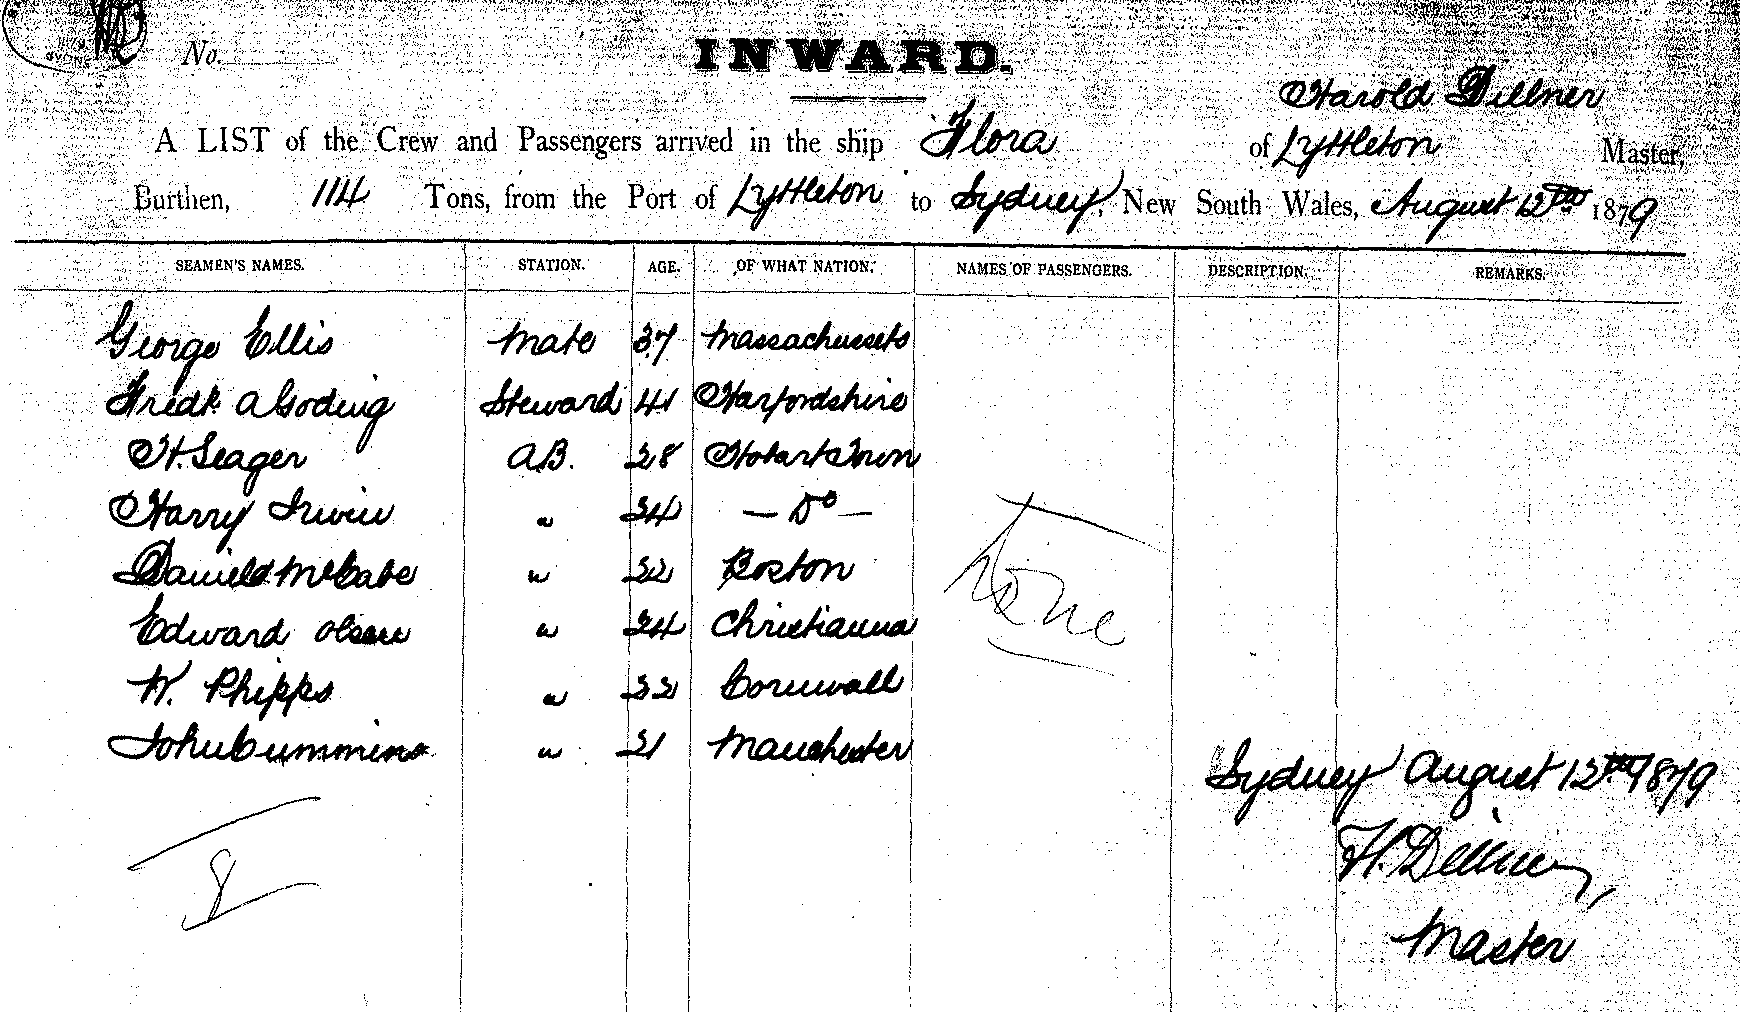 No.
INWARD.
Harold Dillner
A LIST of the Crew and Passengers arrived in the ship Flora of Lyttleton Master,
Burthen, 114 Tons, from the Port of Lyttleton to Sydney, New South Wales, August 12th 1879
SEAMEN'S NAMES. STATION. AGE. OF WHAT NATION. NAMES OF PASSENGERS. DESCRIPTION. REMARKS.
George Ellis Mate 37 Massachussets
Fredk A Goding Steward 41 Harfordshire
H. Seager A.B. 28 Hobart Town
Harry Irwin " 24 — Do —
Daniel McCabe " 22 Boston
Edward Olsen " 24 Christianna
W. Phipps " 22 Cornwall
John Cummins " 21 Manchester
None
Sydney August 12th 1879
8
H. Dillner
Master